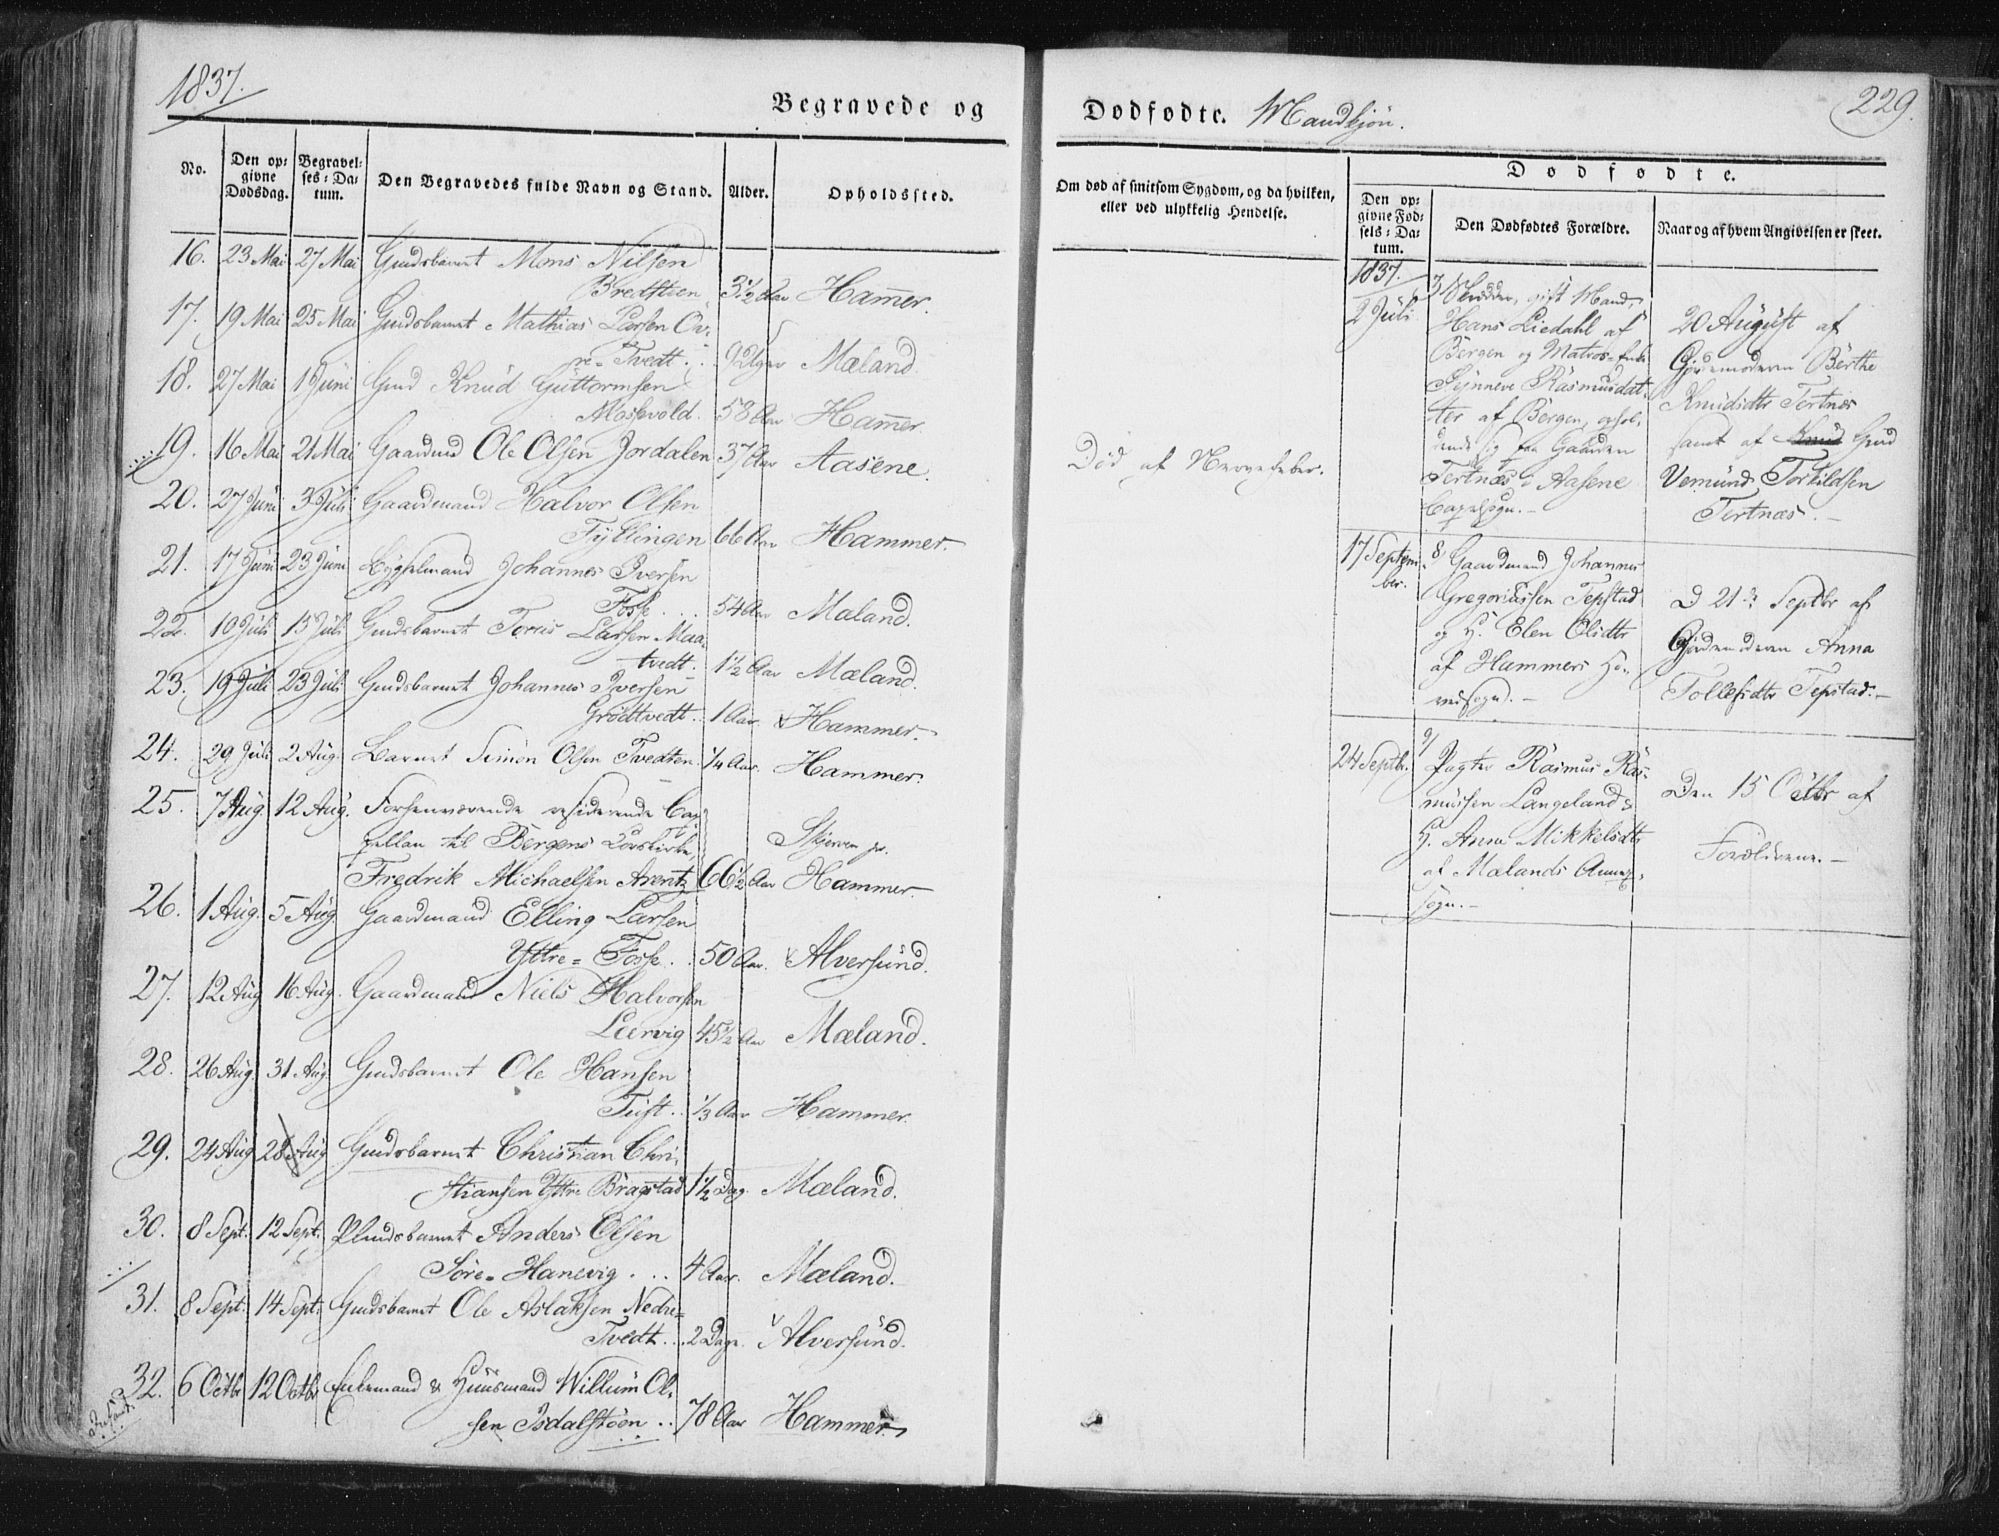 1837.
Begravede og
No.
Den op=
givne
Dødsdag.
Begravel=
ses=Da=
tum.
Den Begravedes fulde Navn og Stand.
Alder.
Opholdssted.
16. 23 Mai 27 Mai Gmdsbarnet Mons Nilsen
Bredstien 3½ Aar Hammer.
17. 19 Mai 25 Mai Gmdsbarnet Mathias Larsen Øv=
re=Tvedt. Mæland.
18. 27 Mai 1 Juni Gmd Knud Guttormsen
58 Aar Hammer.
19. 16 Mai 21 Mai Gaardmd Ole Olsen Jordalen 37 Aar Aasene.
20. 27 Juni 3 Juli Gaardmand Halvor Olsen
Tyllingen 66 Aar Hammer.
21. 17 Juni 23 Juni Johannes Iversen
Fosse 54 Aar Mæland.
22. 10 Juli 15 Juli Gmdsbarnet Torris Larsen Maa=
tvedt. 1½ Aar Mæland.
23. 19 Juli 23 Juli Gmdsbarnet Johannes Iversen
Grødttvedt. 1 Aar. Hammer.
24. 29 Juli 2 Aug. Barnet Simon Olsen Tvedten ¼ Aar. Hammer.
25. 7 Aug. 12 Aug. Forhenværende residerende Ca=
pellan til Bergens
Fredrik Michaelsen Arentz 66½ Aar Hammer
26. 1 Aug. 5 Aug. Gaardmand Elling Larsen
Yttre=Fosse. 50 Aar. Alversund.
27. 12 Aug 16 Aug. Gaardmand Niels Halvorsen
Leervig 45½ Aar Mæland.
28. 26 Aug. 31 Aug. Gmdsbarnet Ole Hansen
Tuft. ⅓ Aar Hammer.
29. 24 Aug 28 Aug Gmdsbarnet Christian Chri=
stiansen Yttre Bragstad 1½ Dag. Mæland.
30. 8 Sept. 12 Sept. Anders Olsen
Søre=Hanevig 4 Aar. Mæland.
31. 8 Sept. 14 Sept. Gmdsbarnet Ole Aslaksen Nedre=
Tvedt 2 Dage. Alversund.
32. 6 Octbr 12 Octbr Enkemand & Huusmand Willum Ol=
sen Isdalstøen 78 Aar Hammer
Dødfødte. Mandkjøn.
229.
Om død af smitsom Sygdom, og da hvilken,
eller ved ulykkelig Hendelse.
Dødfødte.
Den op=
givne Fød=
sels=Da=
tum.
Den Dødfødtes Forældre.
Naar og af hvem Angivelsen er skeet.
Død af Nervefeber.
1837.
2 Juli
Skrædder, gift Mand,
Hans Liedahl af
Bergen og Matros=Enke
Synneve Rasmusdat=
ter af Bergen, ophol=
dende sig paa Gaarden
Tertnæs i Aasene
Capelsogn.
20 August af
Gjordemoderen Berthe
Knudsdtr Tertnæs
samt af Gmd
Vemund Torkildsen
Tertnæs.
17 Septem=
ber.
8/ Gaardmand Johannes
Gregoriussen Tepstad
og H. Elen Olsdtr
af Hammers Ho=
vedsogn.
D 21de Septbr af
Gjordemoderen Anna
Tollefsdtr Tepstad.
24 Septbr.
9/
Pagter Rasmus Ras=
mussen Langeland &
H. Anna Mikkelsdtr
af Mælands Annex=
sogn.
Den 15 Octbr af
Forældrene.